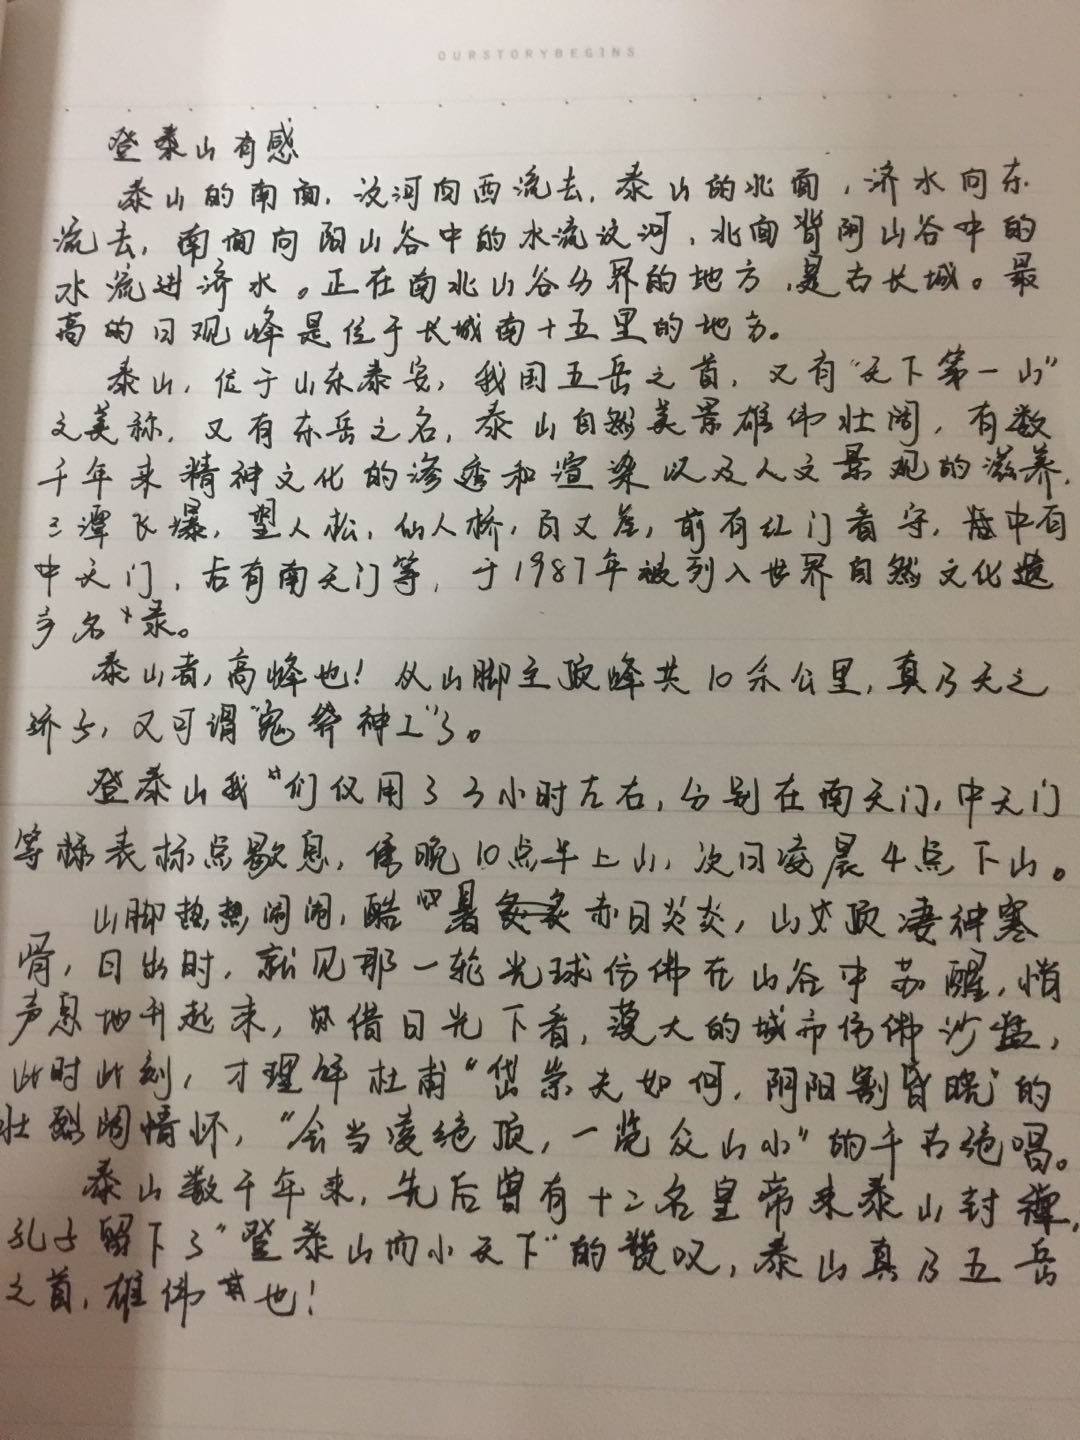 OURSTORYBEGINS
登泰山有感
泰山的南面,汶河向西流去,泰山的北面,济水向东
流去,南面向阳山谷中的水流汶河,北面背阴山谷中的
水流进济水。正在南北山谷分界的地方,是古长城。最
高的日观峰是位于长城南十五里的地方。
泰山,位于山东泰安,我国五岳之首,又有“天下第一山”
之美称,又有东岳之名,泰山自然美景雄伟壮阔,有数
千年来精神文化的渗透和渲染以及人文景观的滋养,
三潭飞瀑,望人松,仙人桥,百丈崖,前有红门看守,在中有
中天门,后有南天门等,于1987年被列入世界自然文化遗
产名录。
泰山者,高峰也!从山脚至顶峰共10余公里,真乃天之
骄子,又可谓“鬼斧神工”了。
登泰山我们仅用了3小时左右,分别在南天门,中天门
等标表标点歇息,傍晚10点半上山,次日凌晨4点下山。
山脚热热闹闹,酷暑赤日炎炎,山顶凄神寒
骨,日出时,就见那一轮光球仿佛在山谷中苏醒,悄
声息地升起来,借日光下看,漠大的城市仿佛沙盘,
此时此刻,才理解杜甫“岱宗夫如何,阴阳割昏晓”的
壮阔情怀,“会当凌绝顶,一览众山小”的千古绝唱。
泰山数千年来,先后曾有十二名皇帝来泰山封禅,
孔子留下了“登泰山而小天下”的赞叹,泰山真乃五岳
之首,雄伟也!